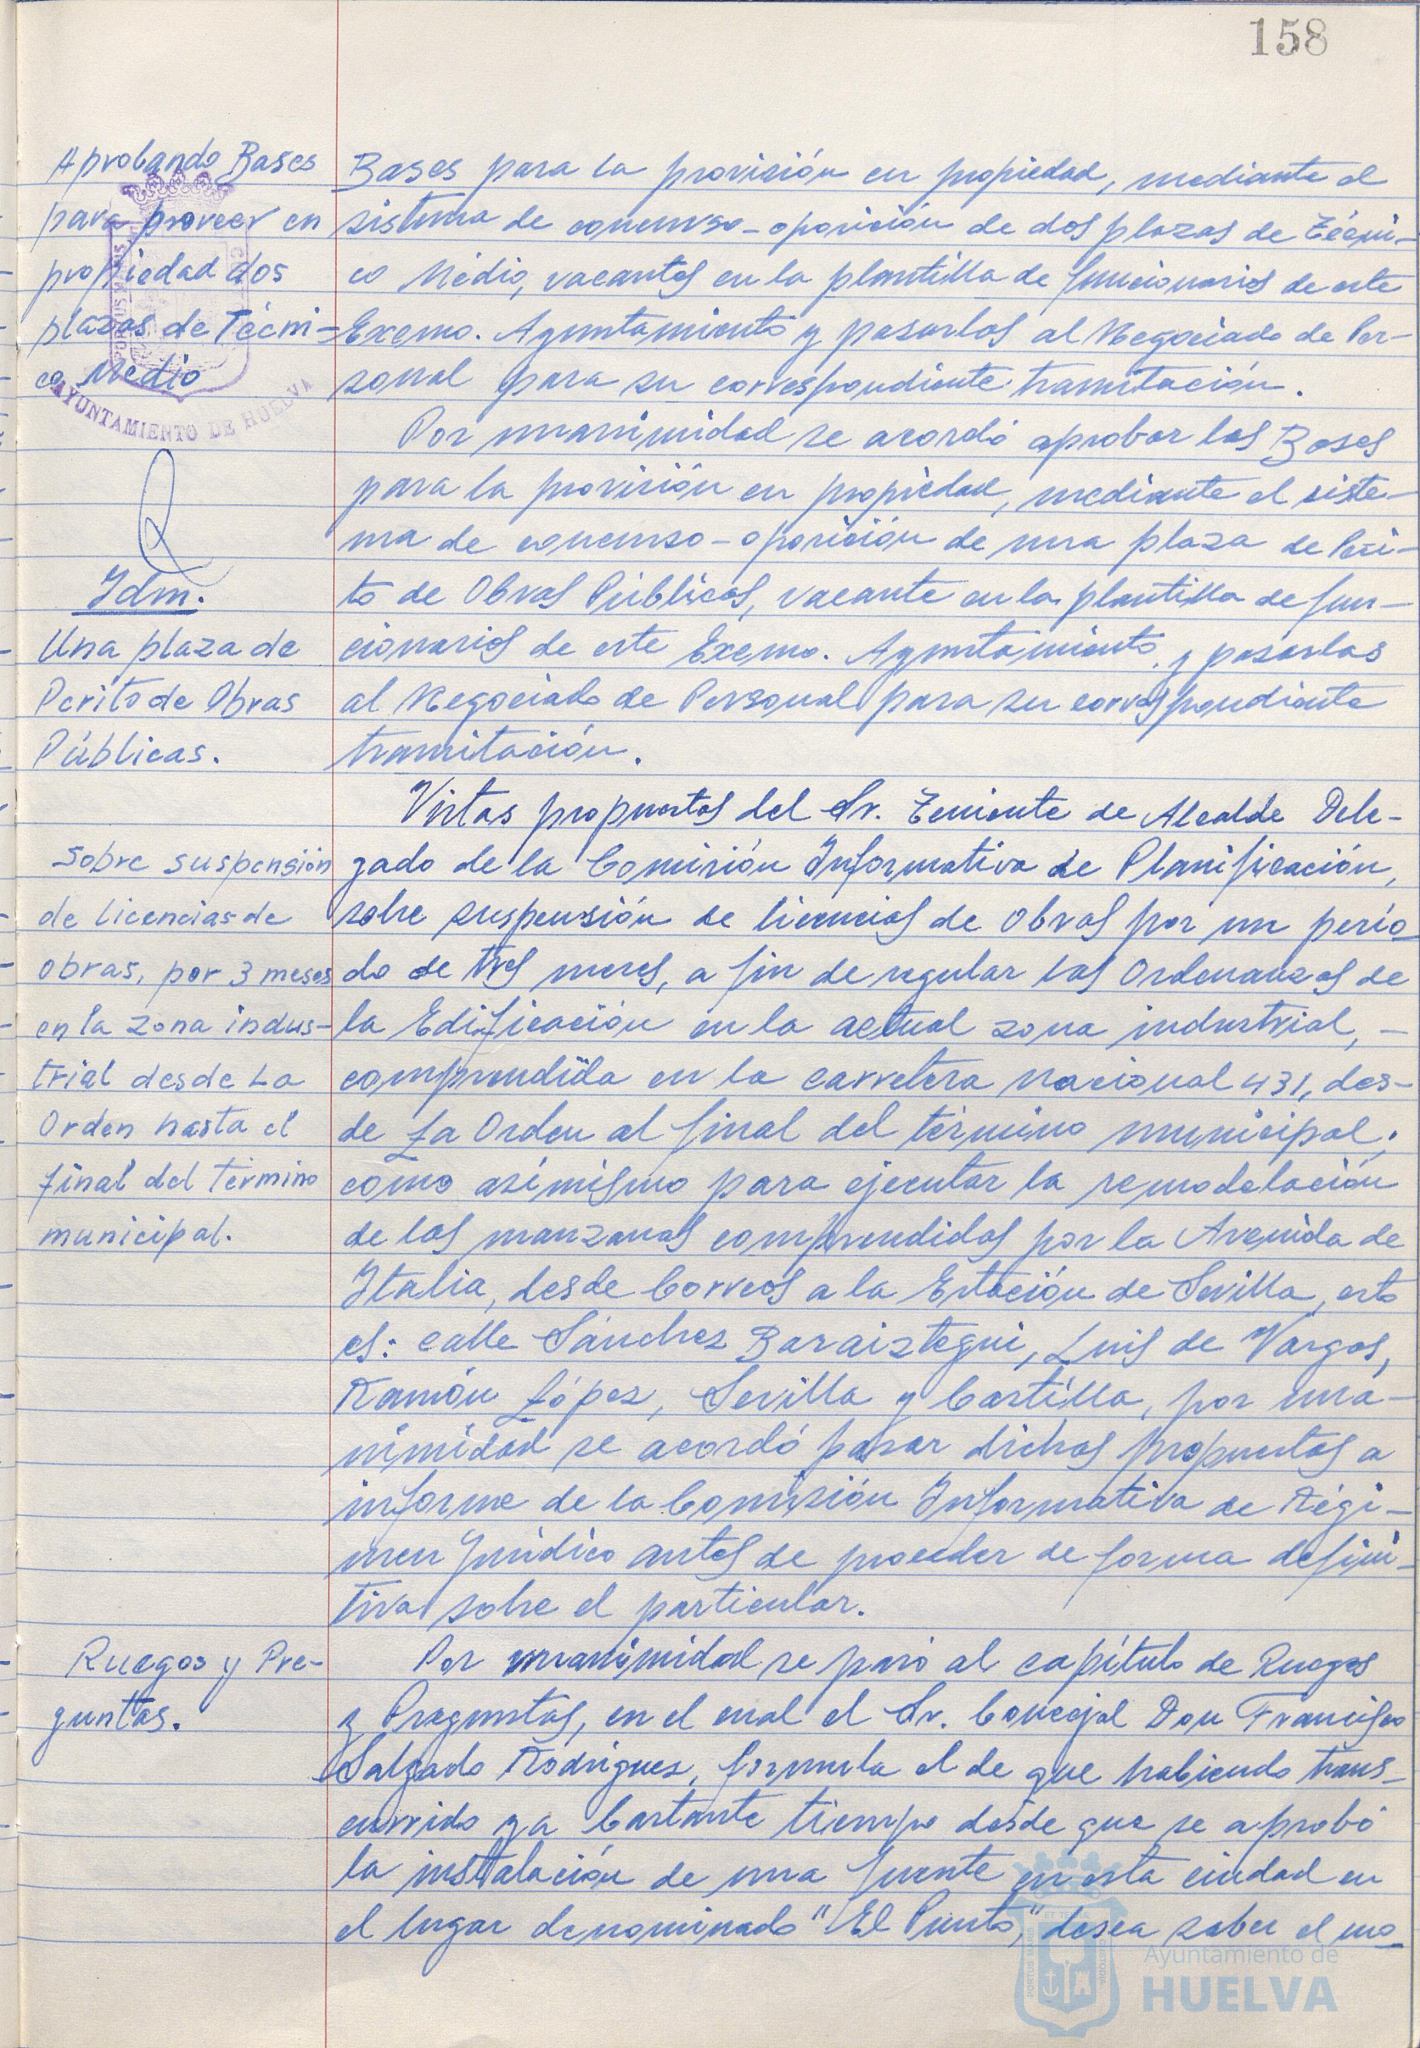 158
Aprobando Bases
para proveer en
propiedad dos
plazas de Técni-
co Medio
AYUNTAMIENTO DE HUELVA
Bases para la provisión en propiedad, mediante el
sistema de concurso-oposición de dos plazas de Técni-
co Medio, vacantes en la plantilla de funcionarios de este
Excmo. Ayuntamiento y pasarlas al Negociado de Per-
sonal para su correspondiente tramitación.
Por unanimidad se acordó aprobar las Bases
para la provisión en propiedad, mediante el siste-
ma de concurso-oposición de una plaza de Peri-
to de Obras Públicas, vacante en la plantilla de fun-
cionarios de este Excmo. Ayuntamiento, y pasarlas
al Negociado de Personal para su correspondiente
tramitación.
Idm.
Una plaza de
Perito de Obras
Públicas.
Vistas propuestas del Sr. Teniente de Alcalde Dele-
gado de la Comisión Informativa de Planificación,
sobre suspensión de licencias de Obras por un perío-
do de tres meses, a fin de regular las Ordenanzas de
la Edificación en la actual zona industrial, -
comprendida en la carretera nacional 431, des-
de La Orden al final del término municipal;
como asimismo para ejecutar la remodelación
de las manzanas comprendidas por la Avenida de
Italia, desde Correos a la Estación de Sevilla, esto
es: calle Sánchez Baraiztegui, Luis de Vargas,
Ramón López, Sevilla y Castilla, por una-
nimidad se acordó pasar dichas propuestas a
informe de la Comisión Informativa de Régi-
men Jurídico antes de proceder de forma defini-
tiva sobre el particular.
Sobre suspensión
de licencias de
obras, por 3 meses
en la zona indus-
trial desde La
Orden hasta el
final del término
municipal.
Ruegos y Pre-
guntas.
Por unanimidad se pasó al capítulo de Ruegos
y Preguntas, en el cual el Sr. Concejal Don Francisco
Salgado Rodríguez, formula el de que habiendo trans-
currido ya bastante tiempo desde que se aprobó
la instalación de una fuente en esta ciudad en
el lugar denominado "El Punto," desea saber el mo-
Ayuntamiento de
HUELVA